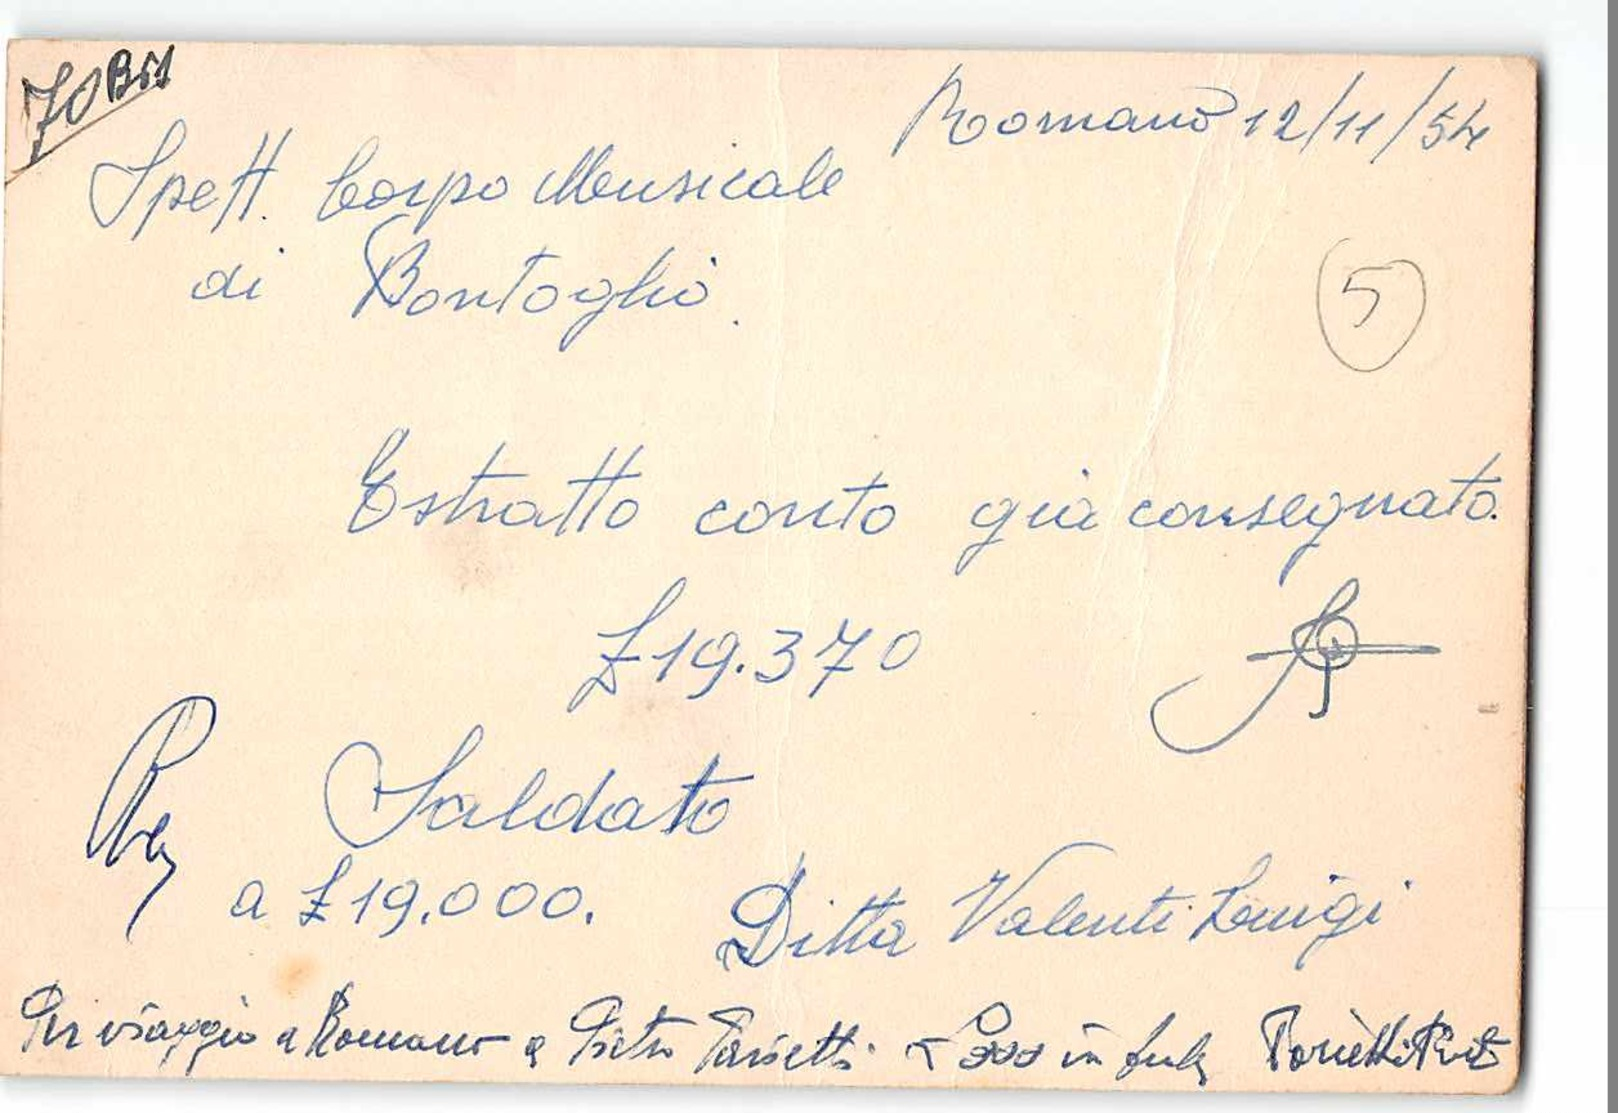 70 Bis
Romano 12/11/54
Spett. Corpo Musicale
di Pontoglio.
5
Estratto conto già consegnato.
£ 19.370
Saldato
a £ 19.000.
Ditta Valenti Luigi
Per viaggio a Romano a Pietro